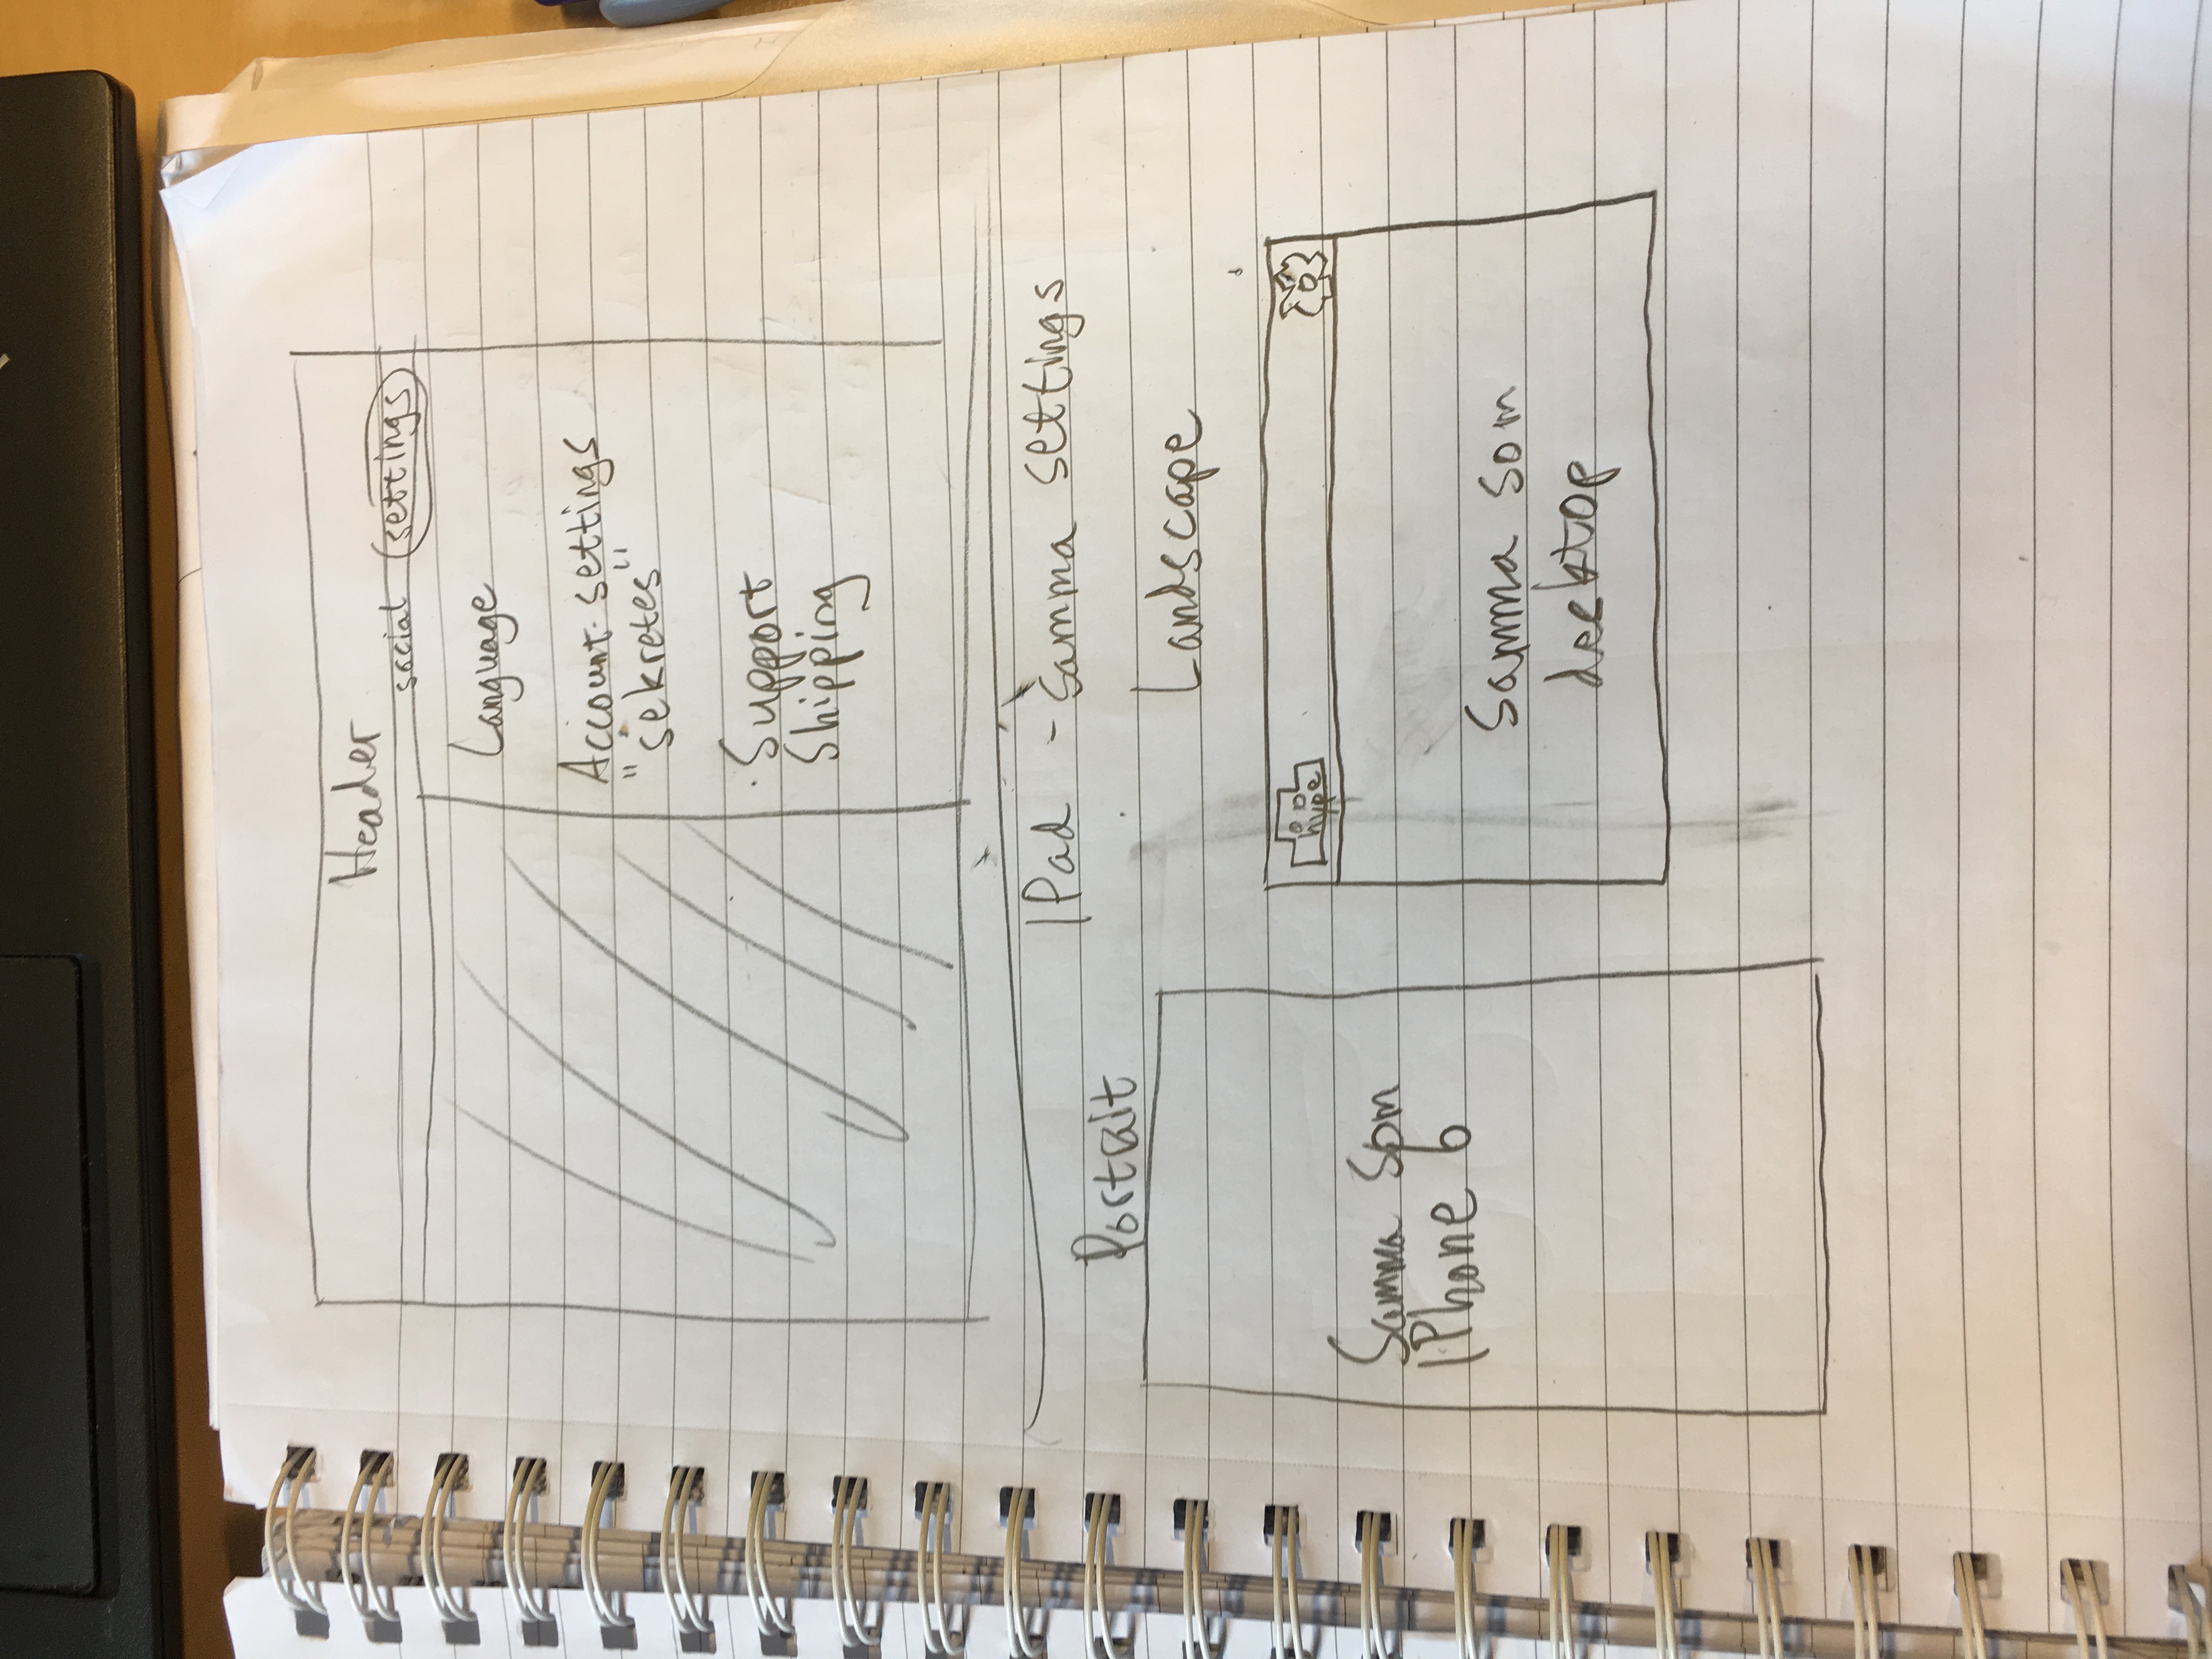 Header
social settings
Language
Account settings
"sekretes"
Support
Shipping
IPad - Samma settings
Portrait
Landscape
hype
Samma som
IPhone 6
Samma som
desktop